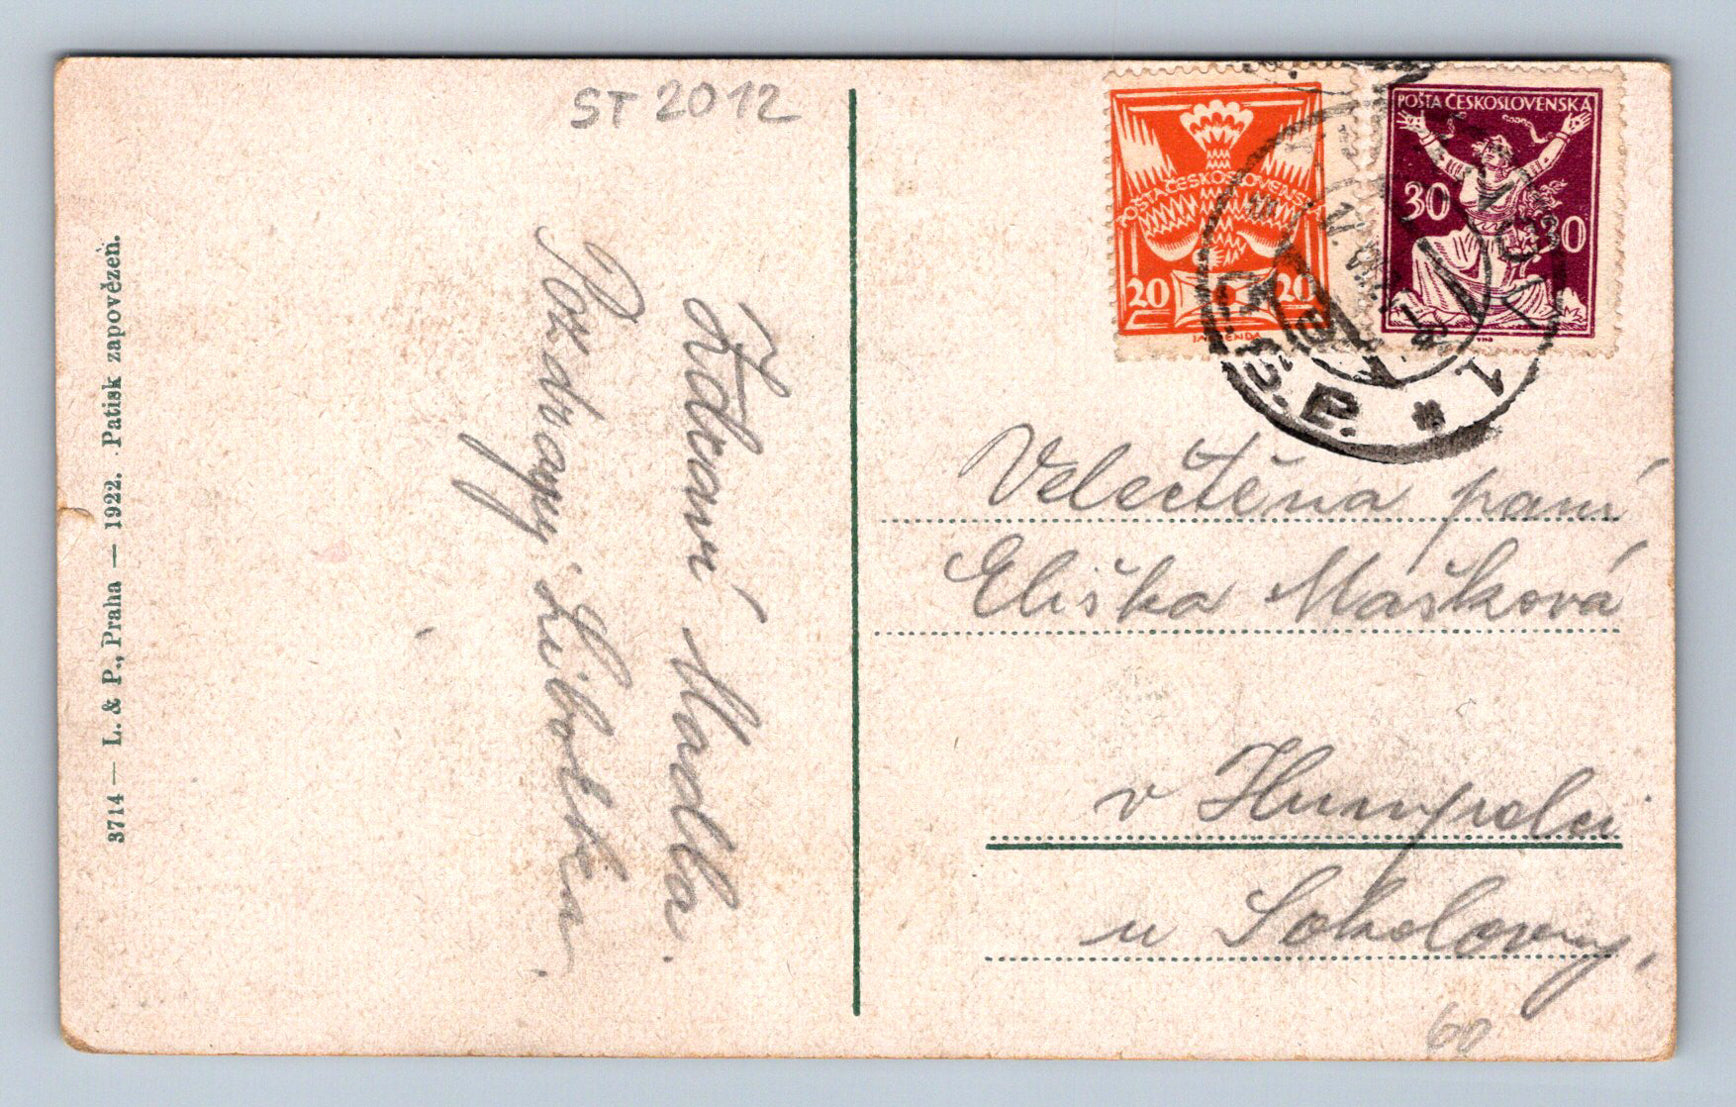 ST 2012
3714 — L. & P., Praha — 1922. Patisk zapovězen.
Zdraví Madla.
Pozdravy Libotkri
POŠTA ČESKOSLOVENSKÁ
20 20
POŠTA ČESKOSLOVENSKÁ
30 30
Velectěna paní
Eliška Mášková
v Humpolci
u Sokolovny.
60